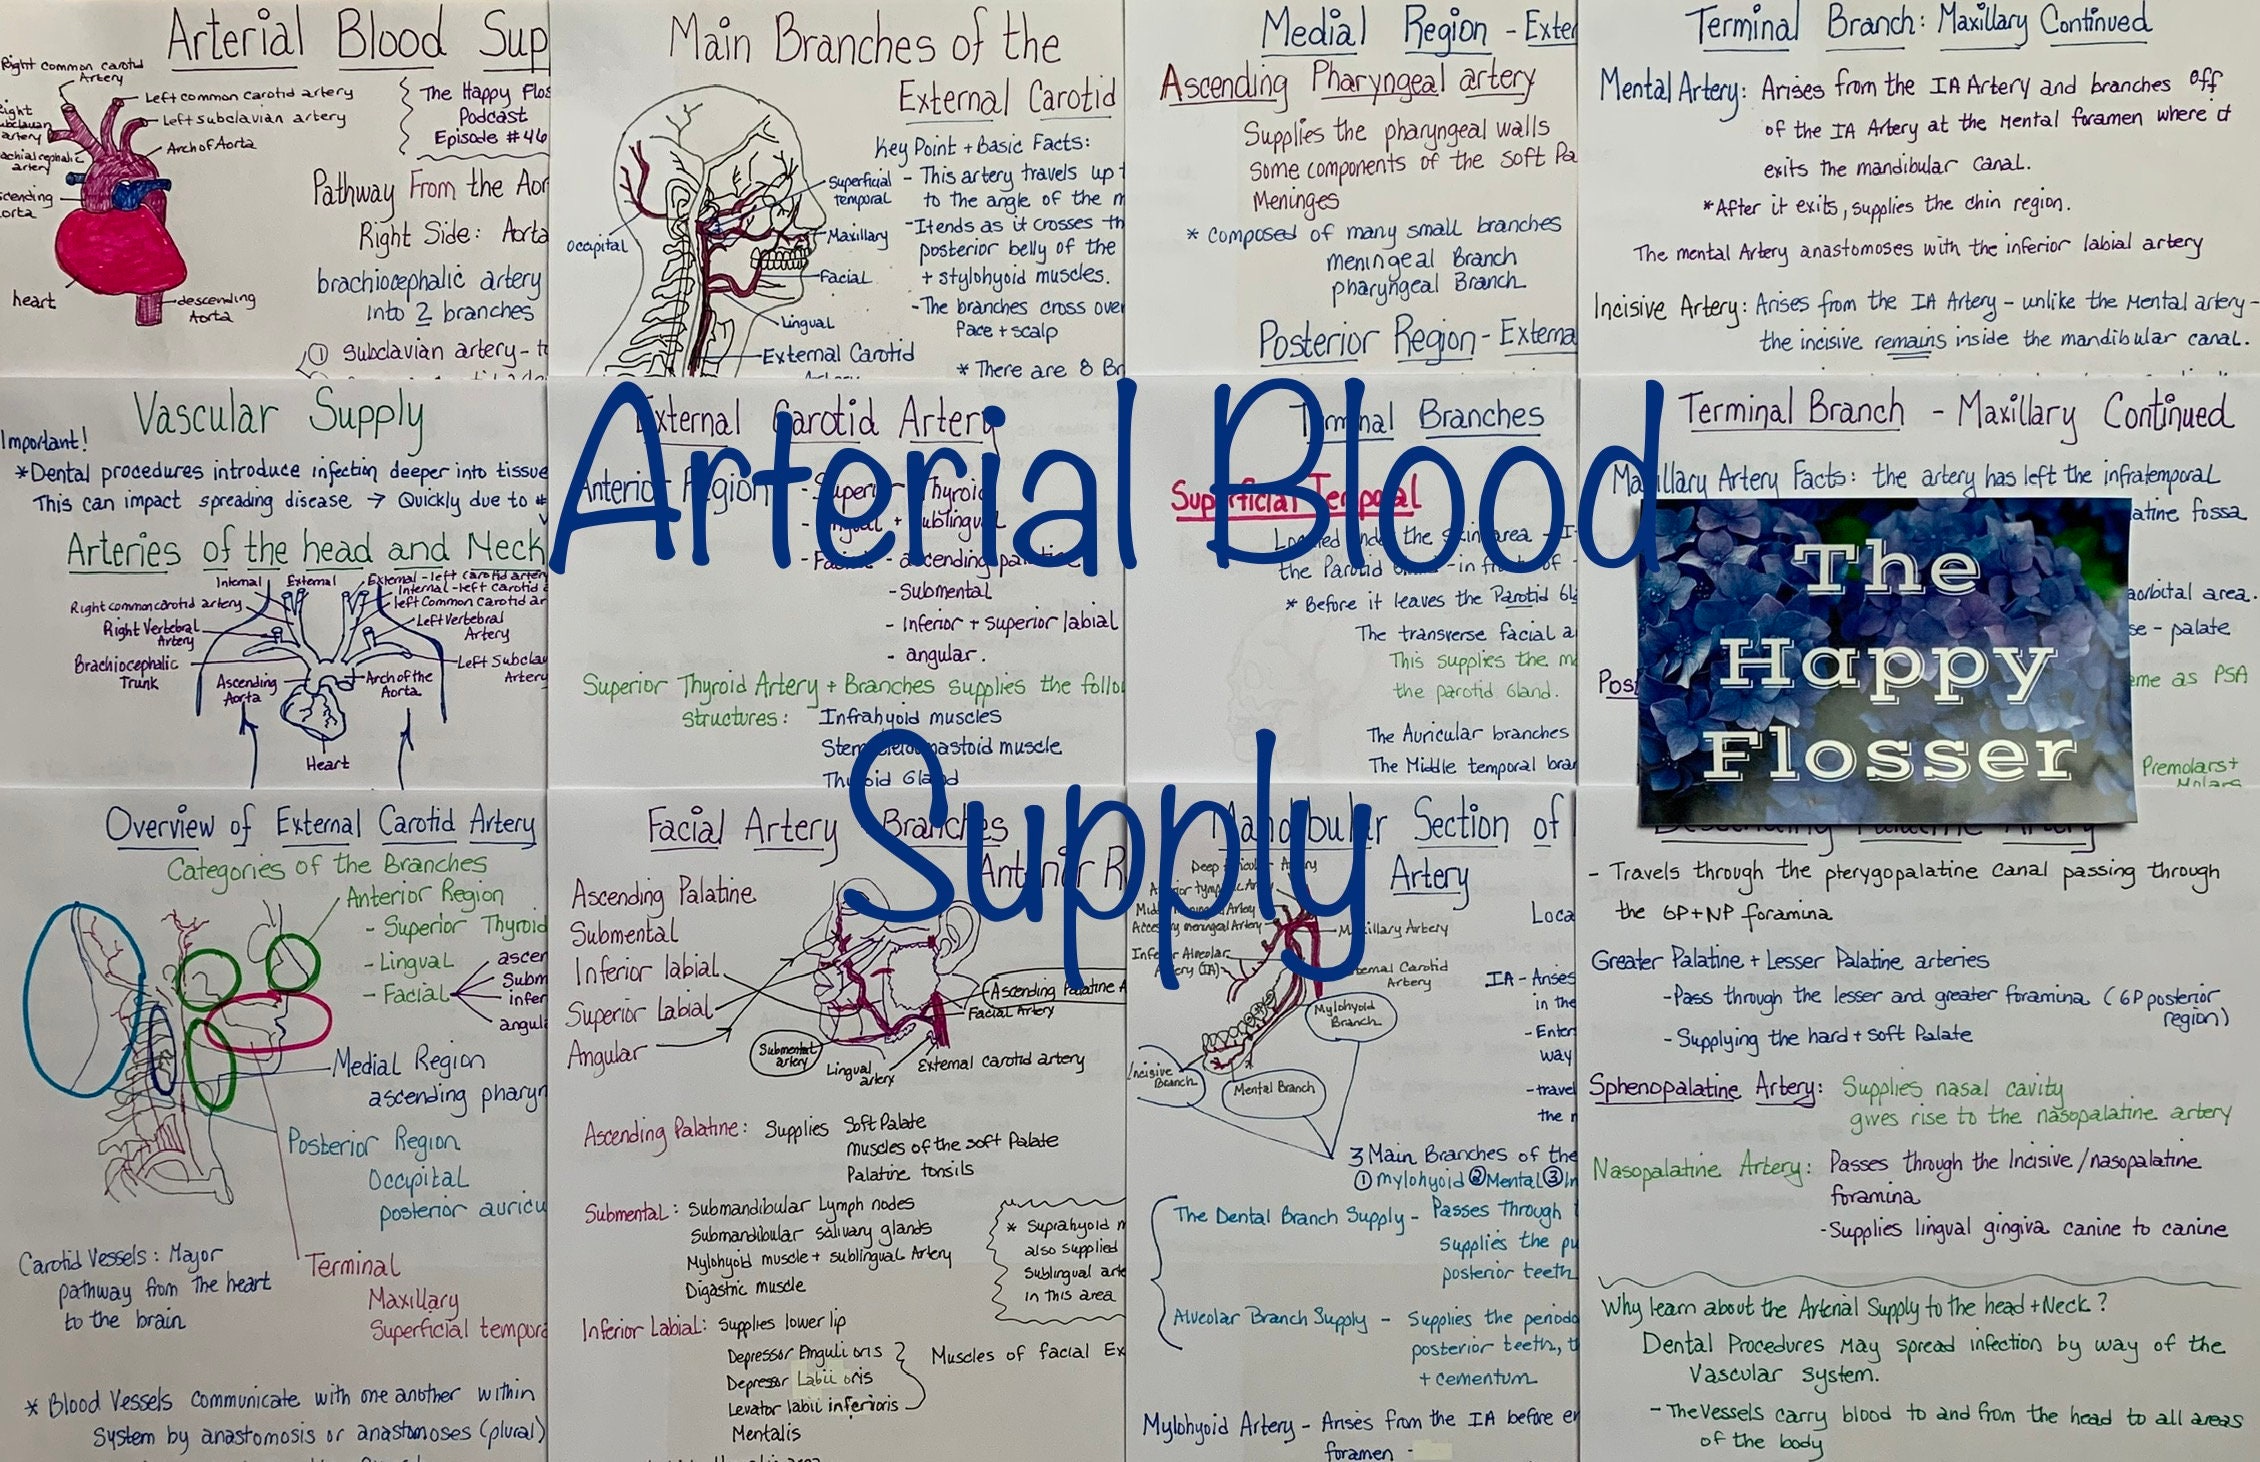 Arterial Blood Sup
Right common carotid
Artery
Left common carotid artery
Left subclavian artery
Arch of Aorta
heart
descending
Aorta
The Happy Flos
Podcast
Episode #46
Pathway From the Aor
Right Side: Aorta
brachiocephalic artery
into 2 branches
① subclavian artery - t
Main Branches of the
External Carotid
Key Point + Basic Facts:
- This artery travels up
to the angle of the m
- It ends as it crosses th
posterior belly of the
+ stylohyoid muscles.
- The branches cross over
face + scalp
* There are 8 Br
occipital
Superficial
temporal
Maxillary
Facial
Lingual
External Carotid
Medial Region - Exter
Ascending Pharyngeal artery
Supplies the pharyngeal walls
Some components of the soft Pa
Meninges
* composed of many small branches
meningeal Branch
pharyngeal Branch
Posterior Region - Externa
Terminal Branch: Maxillary Continued
Mental Artery: Arises from the IA Artery and branches off
of the IA Artery at the Mental foramen where it
exits the mandibular canal.
* After it exits, supplies the chin region.
The mental Artery anastomoses with the inferior labial artery
Incisive Artery: Arises from the IA Artery - unlike the Mental artery -
the incisive remains inside the mandibular canal.
Vascular Supply
Important!
* Dental procedures introduce infection deeper into tissue
This can impact spreading disease → Quickly due to
Arteries of the head and Neck
Internal
External
External - left carotid artery
Internal - left carotid
Right common carotid artery
left Common carotid ar
Right Vertebral
Artery
Left Vertebral
Artery
Brachiocephalic
Trunk
Left Subcla
Artery
Ascending
Aorta
Arch of the
Aorta
Heart
External Carotid Artery
Anterior Region - Superior Thyroid
- Lingual + Sublingual
- Facial - ascending palatine
- Submental
- Inferior + Superior labial
- angular.
Superior Thyroid Artery + Branches supplies the follo
structures: Infrahyoid muscles
Sternocleidomastoid muscle
Thyroid Gland
Arterial Blood
Supply
Terminal Branches
Superficial Temporal
Located under the skin area - I
the Parotid Gland - in front of
* Before it leaves the Parotid Gla
The transverse facial a
This supplies the m
the parotid Gland.
The Auricular branches
The Middle temporal bran
Terminal Branch - Maxillary Continued
Maxillary Artery Facts: the artery has left the infratemporal
atine fossa
aorbital area.
se - palate
Pos
ame as PSA
Premolars +
Molars
The
Happy
Flosser
Overview of External Carotid Artery
Categories of the Branches
Anterior Region
- Superior Thyroid
- Lingual
- Facial
ascen
Subm
infer
angula
Medial Region
ascending pharyn
Posterior Region
Occipital
posterior auricu
Terminal
Maxillary
Superficial tempora
Carotid Vessels: Major
pathway from the heart
to the brain
* Blood Vessels communicate with one another within
System by anastomosis or anastomoses (plural)
Facial Artery Branches
Anterior R
Ascending Palatine
Submental
Inferior labial
Superior Labial
Angular
Submental
artery
Lingual
artery
Ascending Palatine A
Facial Artery
External carotid artery
Ascending Palatine: Supplies Soft Palate
muscles of the soft Palate
Palatine tonsils
Submental: Submandibular Lymph nodes
Submandibular salivary glands
Mylohyoid muscle + sublingual Artery
Digastric muscle
* Suprahyoid m
also supplied
Sublingual arte
in this area
Inferior Labial: Supplies lower lip
Depressor Anguli oris
Depressor Labii oris
Levator labii inferioris
Mentalis
Muscles of facial Ex
Mandibular Section of
Artery
Maxillary Artery
Inferior Alveolar
Artery (IA)
External Carotid
Artery
Mylohyoid
Branch
Incisive
Branch
Mental Branch
Loca
IA - Arises
in the
- Enter
way
- travel
the
3 Main Branches of the
① Mylohyoid ② Mental ③ In
The Dental Branch Supply - Passes Through
Supplies the pu
posterior teeth
Alveolar Branch Supply - Supplies the periodo
posterior teeth, t
+ cementum
Mylohyoid Artery - Arises from the IA before en
foramen -
Descending Palatine Artery
- Travels through the pterygopalatine canal passing through
the GP + NP foramina
Greater Palatine + Lesser Palatine arteries
- Pass through the lesser and greater foramina (GP posterior
region)
- Supplying the hard + soft Palate
Sphenopalatine Artery: Supplies nasal cavity
gives rise to the nasopalatine artery
Nasopalatine Artery: Passes through the Incisive/nasopalatine
foramina
- Supplies lingual gingiva canine to canine
Why learn about the Arterial Supply to the head + Neck?
Dental Procedures May spread infection by way of the
Vascular System.
- The Vessels carry blood to and from the head to all areas
of the body